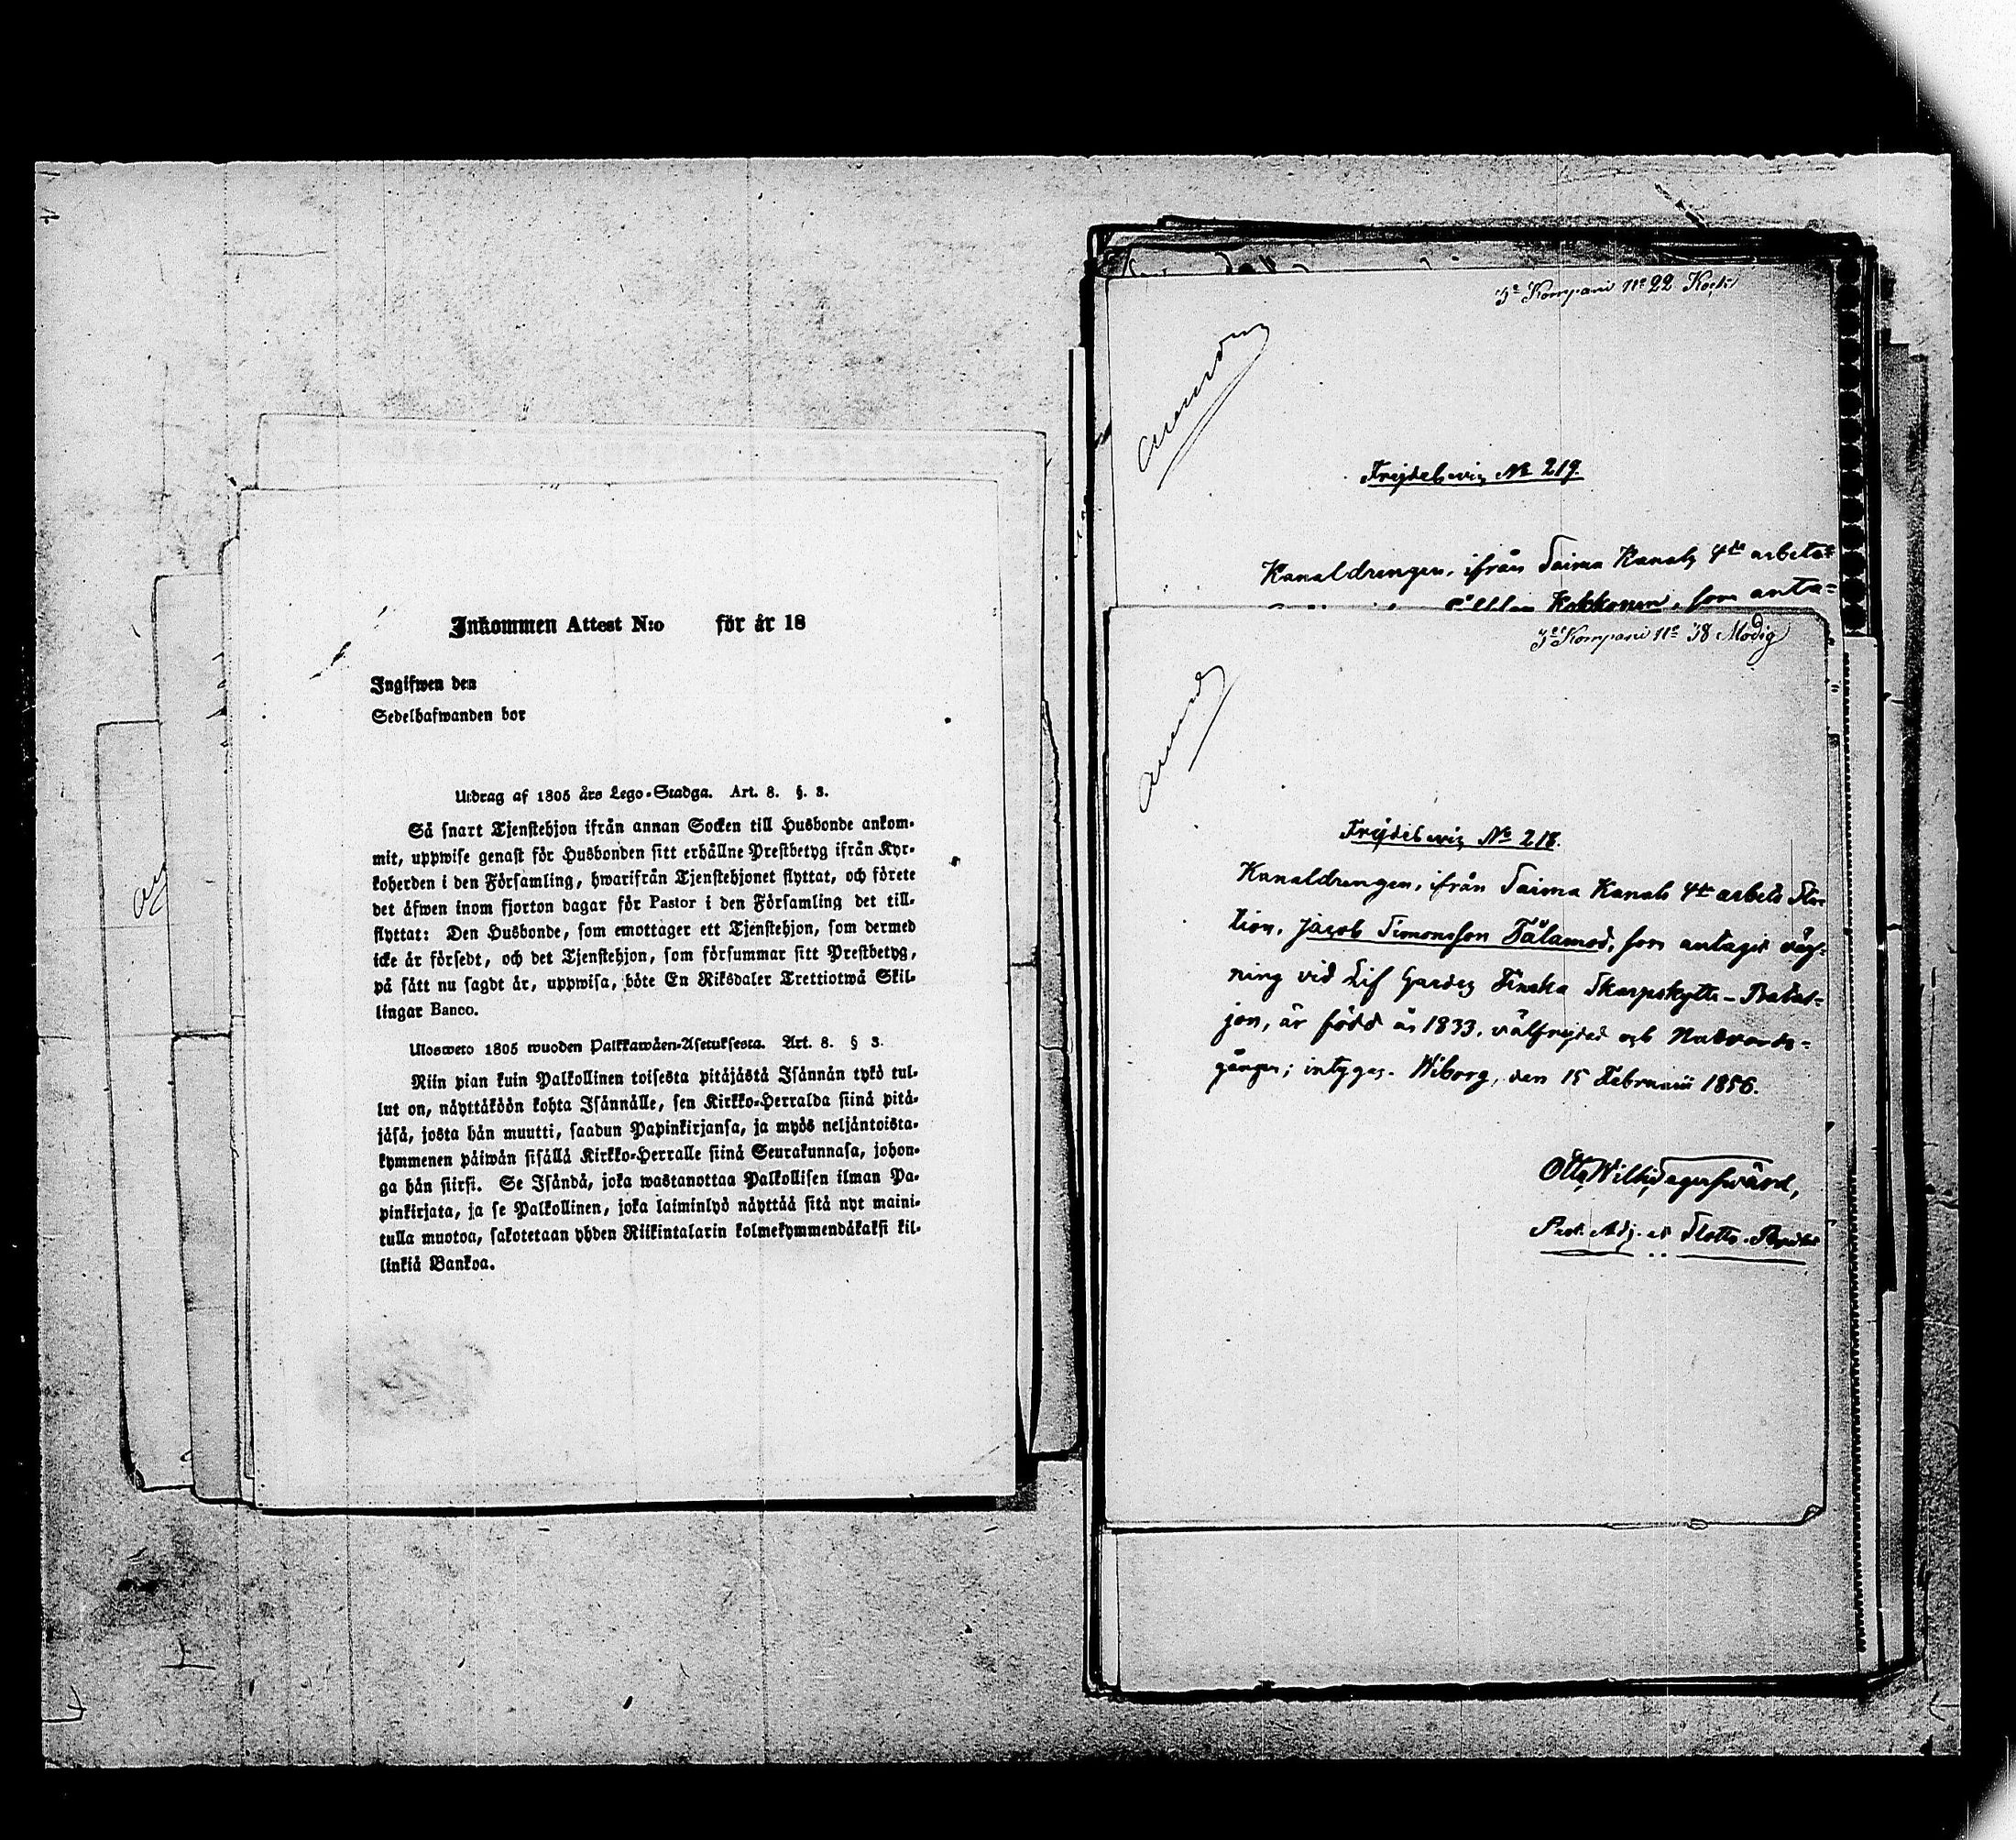 Inkommen Attest N:o för år 18
Ingifwen den
Sedelhafwanden bor
Utdrag af 1805 års Lego-Stadga. Art. 8. §. 3.
Så snart Tjenstehjon ifrån annan Socken till Husbonde ankom-
mit, uppwise genast för Husbonden sitt erhållne Prestbetyg ifrån Kyr-
koherden i den Församling, hwarifrån Tjenstehjonet flyttat, och förete
det äfwen inom fjorton dagar för Pastor i den Församling det till-
flyttat: Den Husbonde, som emottager ett Tjenstehjon, som dermed
icke är försedt, och det Tjenstehjon, som försummar sitt Prestbetyg,
på sätt nu sagdt är, uppwisa, böte En Riksdaler Trettiotwå Skil-
lingar Banco.
Ulosweto 1805 wuoden Palkkawäen-Asetuksesta. Art. 8. § 3.
Niin pian kuin Palkollinen toisesta pitäjästä Isännän tykö tul-
lut on, näyttäköön kohta Isännälle, sen Kirkko-Herralda siinä pitä-
jäsä, josta hän muutti, saadun Papinkirjansa, ja myös neljäntoista-
kymmenen päiwän sisällä Kirkko-Herralle siinä Seurakunnasa, johon-
ga hän siirsi. Se Isändä, joka wastanottaa Palkollisen ilman Pa-
pinkirjata, ja se Palkollinen, joka laiminlyö näyttää sitä nyt maini-
tulla muotoa, sakotetaan yhden Riikintalarin kolmekymmendäkaksi kil-
linkiä Bankoa.
3e Kompani No 22 Kock
Frejdebevis No 219.
Kanaldrengen, ifrån Saima Kanals 4de arbets-
Kokkonen, som anta-
3e Kompani No 38 Modig
Frejdebevis No 218.
Kanaldrengen, ifrån Saima Kanals 4de arbets Sta-
tion, Jacob Simonsson Tälamod, som antagit väg-
ning vid Lif Gardes Finska Skarpskytte-Batal-
jon, är född år 1833, välfrejdad och Nattvards-
gången; intygas. Wiborg, den 15 Februarii 1856.
Otto Wilh. Fagerswärd,
Past. Adj. et Slotts-Pred